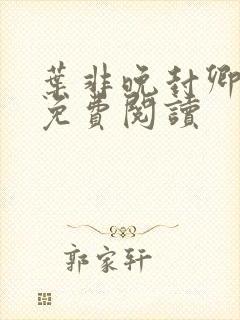 葉非晚封卿
免費閱讀
郭家轩